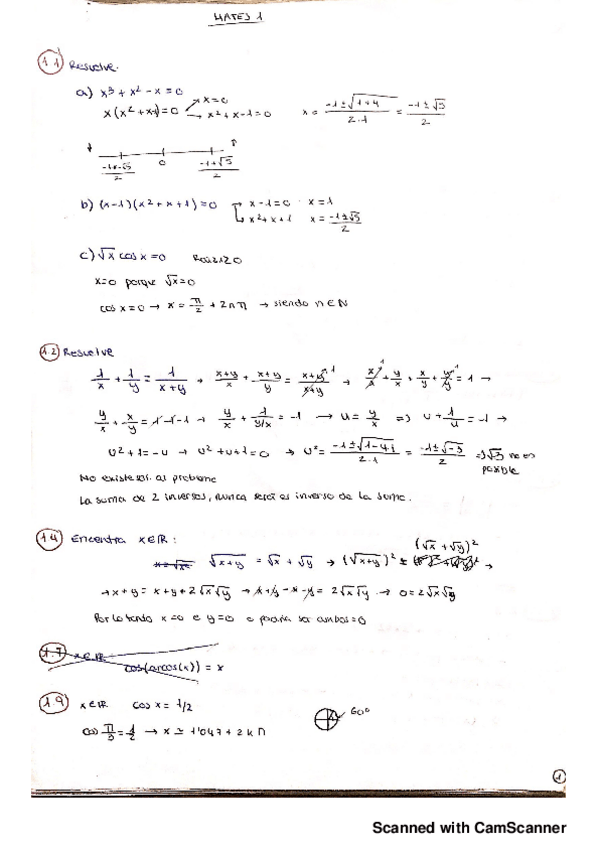 MATES 1
1.1 Resuelve.
a) x³ + x² - x = 0
x(x² + x-1) = 0 → x = 0
→ x² + x - 1 = 0 x = (-1 ± √(1+4))/(2·1) = (-1 ± √5)/2
(-1-√5)/2 0 (-1+√5)/2
b) (x-1)(x² + x + 1) = 0 → x - 1 = 0 x = 1
→ x² + x + 1 x = (-1 ± √3)/2
c) √x cos x = 0
x = 0 porque √x = 0
cos x = 0 → x = π/2 + 2nπ → siendo n ∈ N
1.2 Resuelve
1/x + 1/y = 1/(x+y) → (x+y)/x + (x+y)/y = (x+y)/(x+y) 1 → x/x 1 + y/x + x/y + y/y 1 = 1 →
y/x + x/y = 1 - 1 - 1 → y/x + 1/(y/x) = -1 → u = y/x => u + 1/u = -1 →
u² + 1 = -u → u² + u + 1 = 0 → u = (-1 ± √(1-4·1))/(2·1) = (-1 ± √-3)/2 => √3 no es
posible
No existe sol. al problema
La suma de 2 inversos, nunca será el inverso de la suma.
1.4 Encentra x ∈ R :
√(x+y) = √x + √y → (√(x+y))² = (√x + √y)² →
→ x + y = x + y + 2√x√y → x + y - x - y = 2√x√y → 0 = 2√x√y
Por lo tanto x = 0 e y = 0 o podría ser ambos = 0
1.7 x ∈ R
cos(arcos(x)) = x
1.9 x ∈ R cos x = 1/2 60º
cos π/3 = 1/2 → x ≃ 1'047 + 2kπ
1
Scanned with CamScanner